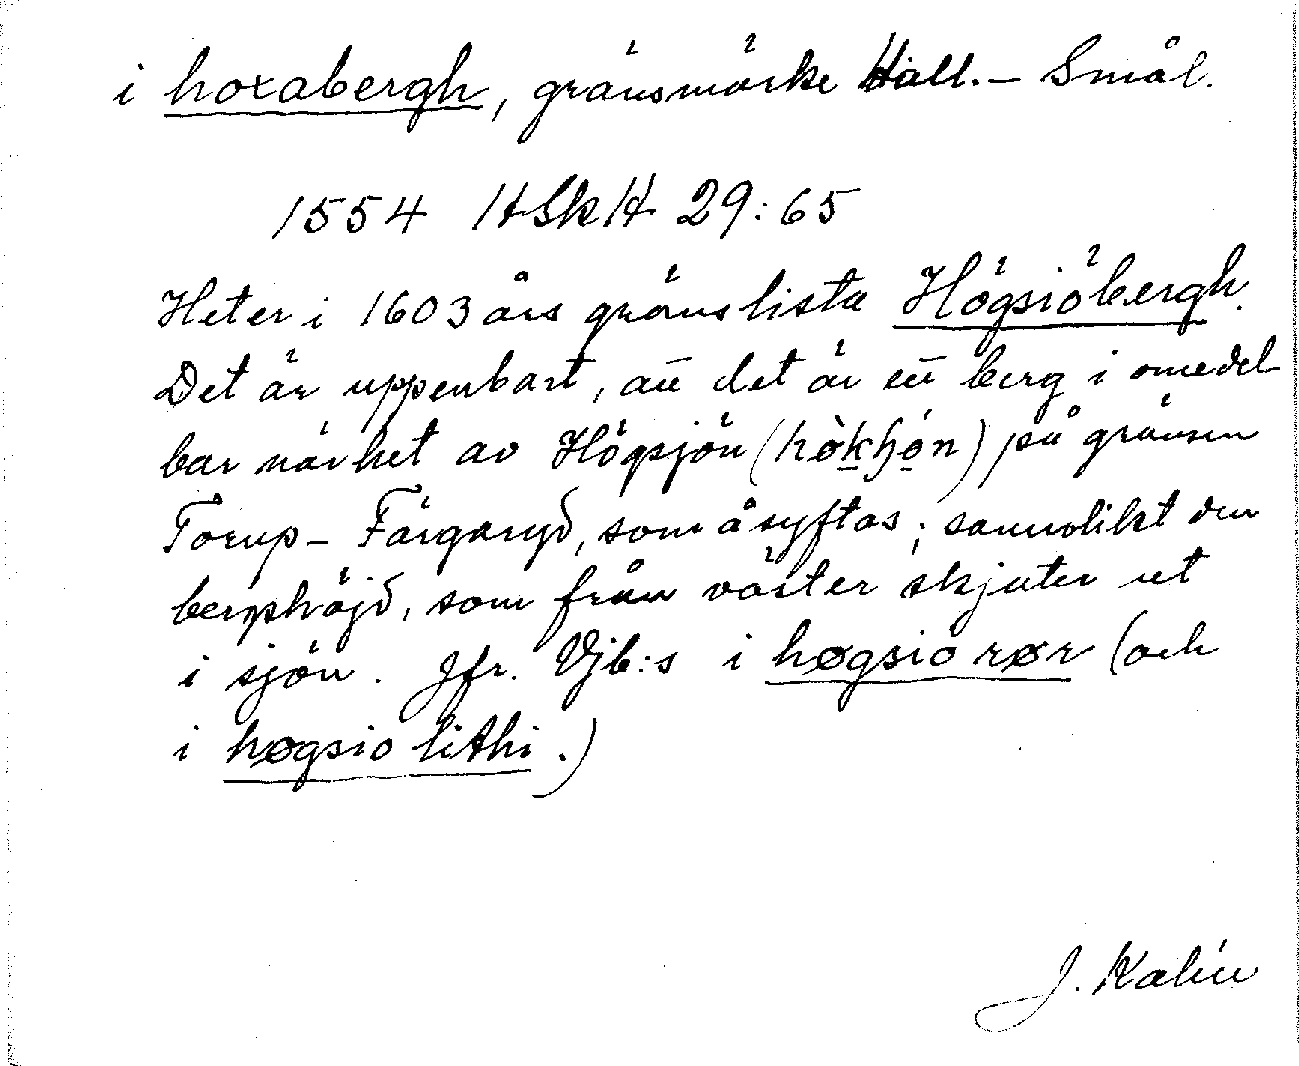 i hoxabergh, gränsmärke Hall. – Smål.
1554 HSkH 29:65
Heter i 1603 års gränslista Högsiöbergh.
Det är uppenbart, att det är ett berg i omedel-
bar närhet av Högsjön (hòkhón) på gränsen
Torup – Färgaryd, som åsyftas; sannolikt den
bergshöjd, som från väster skjuter ut
i sjön. Jfr. Vjb:s i høgsio rør (och
i høgsio lithi.)
J. Kalén